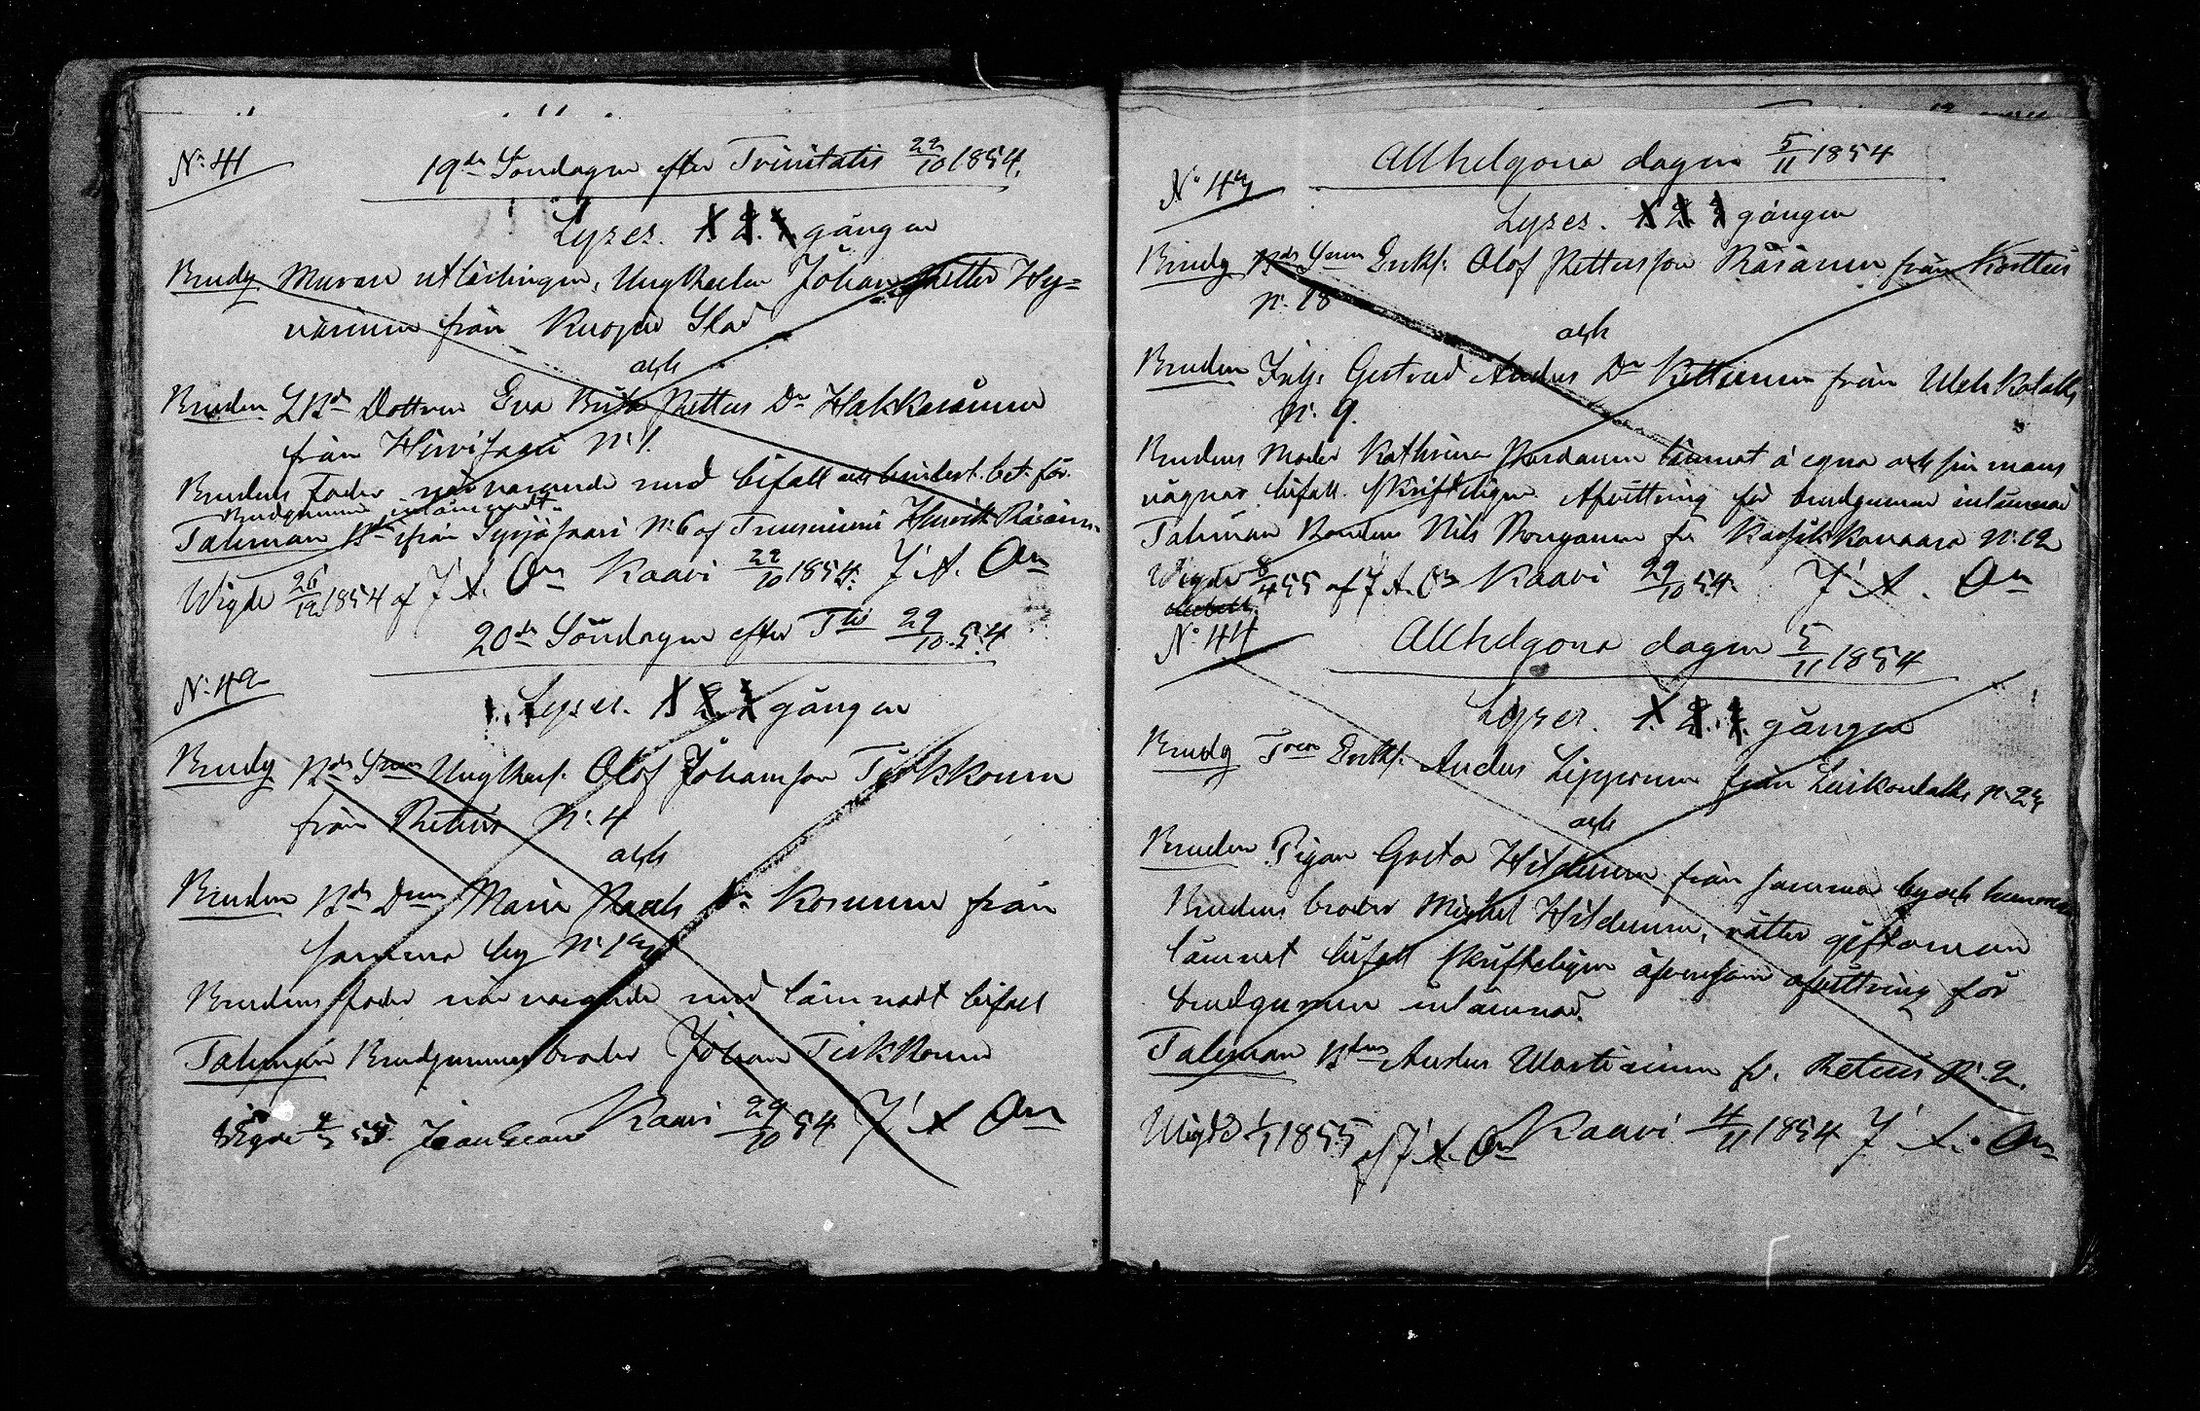 N:o 41
19de Söndagen efter Trinitatis 22/10 1854.
Lyses. 1. 2. 3. gången
Brudg Murare utlärlingen, Ungkarlen Johan Petter Hy=
värinen från Kuopio Stad
och
Bruden LBds Dottren Eva Brita Petters Dr Hakkarainen
från Hirvisaari N:1.
Brudens Fader närvarande med bifall och hindert. bet. för
Brudgummen inlämnadt.
Talman Bn ifrån Syrjäsaari N:6 af Tuusniemi Henrik Räsänen
Wigde 26/12 1854 af J. A. On Kaavi 22/10 1854. J. A. On
20de Söndagen efter Ttis 29/10 54
N:42
Lyses. 1 2 3 gången
Brudg Bds Snen Ungkarl. Olof Johansson Tirkkonen
från Retuis N:4
och
Bruden Bds Dren Maria Pauls Dr Kosunen från
samma by N:13
Brudens fader närvarande med lämnadt bifall
Talman Brudgummens broder Johan Tirkkonen
Wigde 4/3 55. Kaavi 29/10 54 J A On
N:o 43
Allhelgona dagen 5/11 1854
Lyses. 1 2 3 gången
Brudg Bds Snen Enkl. Olof Pettersson Räsänen från Kortteis
N:18
och
Bruden Inhs Gertrud Anders Dr Kettunen från
N:9.
Brudens Moder Kathrina Pardanen lämnat å egna och sin mans
vägnar bifall. Skrifteligen. Afvittring för brudgummen inlämnad
Talman Bonden Nils fr N:12
Wigde 8/4 55 af J. A. On Kaavi 29/10 54. J A. On
N:o 44
Allhelgona dagen 5/11 1854
Lyses. 1. 2. 3. gången
Brudg Tren Enkl. Anders Lipponen från Luikonlaks N:23
och
Bruden Pigan Gosta Hildunen från samma by och hemman
Brudens broder Mickel Hildunen, rätter giftoman
lämnat bifall skrifteligen äfvensom afvittring för
brudgummen inlämnad.
Talman Bdns Anders Wartiainen fr. Retuis N:2.
Wigde 1/1 1855 af J. A. On Kaavi 4/11 1854 J. A. On